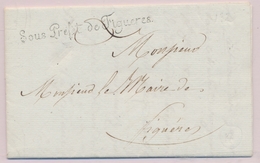 Sous Préft. de Figueres.
Monsieur
Monsieur le Maire de
Figuéres